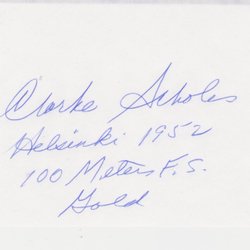 Clarke Scholes
Helsinki 1952
100 Meters F.S.
Gold